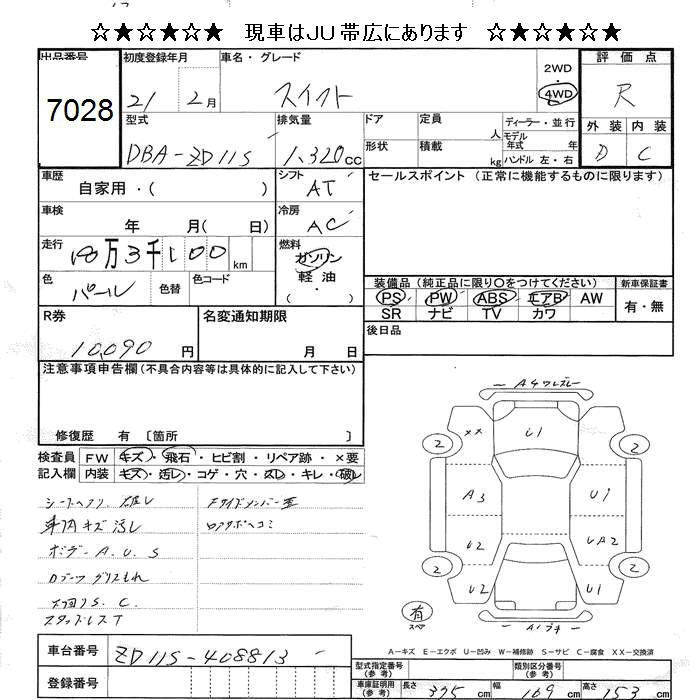 ☆★☆★☆★☆ 現車はJU帯広にあります ☆★☆★☆★☆
出品番号 初度登録年月 車名・グレード 評価点
7028 21 2月 スイフト 2WD・4WD R
型式 排気量 ドア 定員 人 ディーラー・並行 外装 内装
DBA-ZD11S 1,320cc 形状 積載 kg モデル年式 年 ハンドル 左・右 D C
車歴 シフト セールスポイント (正常に機能するものに限ります)
自家用・( ) AT
車検 冷房
年 月( 日) AC
走行 燃料
10万3千100km ガソリン
軽油
・( )
色 色替 色コード 装備品 (純正品に限り○をつけてください) 新車保証書
パール PS PW ABS エアB AW 有・無
SR ナビ TV カワ
R券 名変通知期限 後日品
10,090円 月 日
注意事項申告欄(不具合内容等は具体的に記入して下さい)
修復歴 有 〔箇所 〕
検査員 FW キズ・飛石・ヒビ割・リペア跡・×要
記入欄 内装 キズ・汚レ・コゲ・穴・スレ・キレ・破レ
破レ Fサイドメンバー
キズ 汚レ ヘコミ
ボデー A.U.S
Dブーツ グリスもれ
S.C.
スタッドレスT
XX U1
2 2
A3 U1
U2 UA2
2 2
U2 U1
有
スペア
A-キズ E-エクボ U-凹み W-補修跡 S-サビ C-腐食 XX-交換済
車台番号 ZD11S-408813
登録番号
型式指定番号(参考) 類別区分番号(参考)
車庫証明用(参考) 長さ 375cm 幅 169cm 高さ 153cm